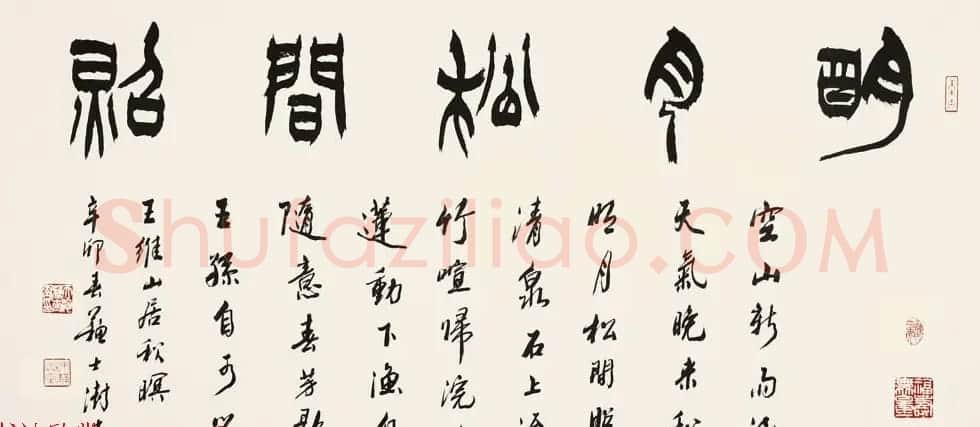 明月松間照
空山新雨
天氣晚來秋
明月松間照
清泉石上
竹喧歸浣
蓮動下漁
隨意春芳歇
王孫自可
王維山居秋暝
辛卯春蘇士澍
Shufaziliao.COM